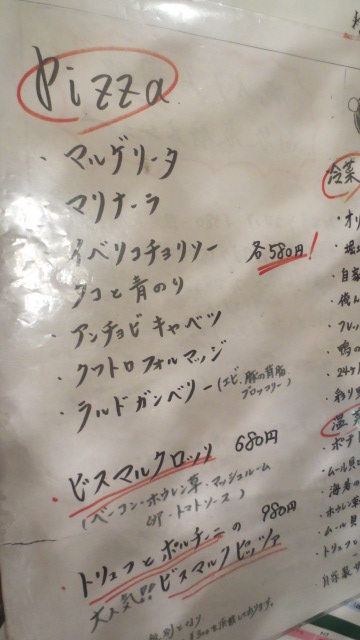 Pizza
・マルゲリータ
・マリナーラ
・イベリコチョリソー 各580円!
・タコと青のり
・アンチョビキャベツ
・クワトロフォルマッジ
・ラルドガンベリー(エビ、豚の背脂
ブロッコリー)
・ビスマルクロッソ 680円
(ベーコン・ホウレン草・マッシュルーム
卵・トマトソース)
・トリュフとポルチーニの 980円
大人気!!ビスマルクピッツァ
冷菜
・自家
・鴨の
・24ヶ月
・彩り
温
・ポテ
・ムール貝
・海老の
・ホウレン草
・ムール貝
・トリュフと